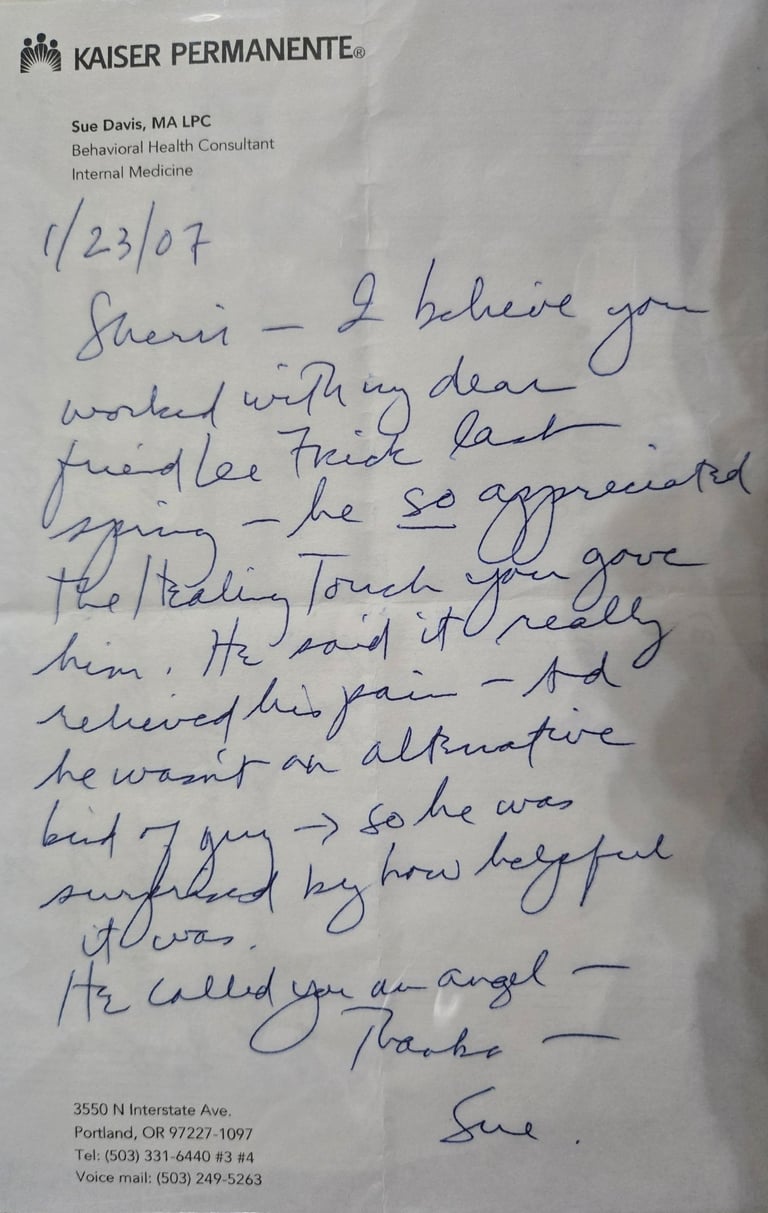 KAISER PERMANENTE®
Sue Davis, MA LPC
Behavioral Health Consultant
Internal Medicine
1/23/07
Sherri — I believe you
worked with my dear
friend Lee Frick last
spring — he so appreciated
the Healing Touch you gave
him. He said it really
relieved his pain — And
he wasn't an alternative
kind of guy → so he was
surprised by how helpful
it was.
He called you an angel —
Thanks —
Sue.
3550 N Interstate Ave.
Portland, OR 97227-1097
Tel: (503) 331-6440 #3 #4
Voice mail: (503) 249-5263